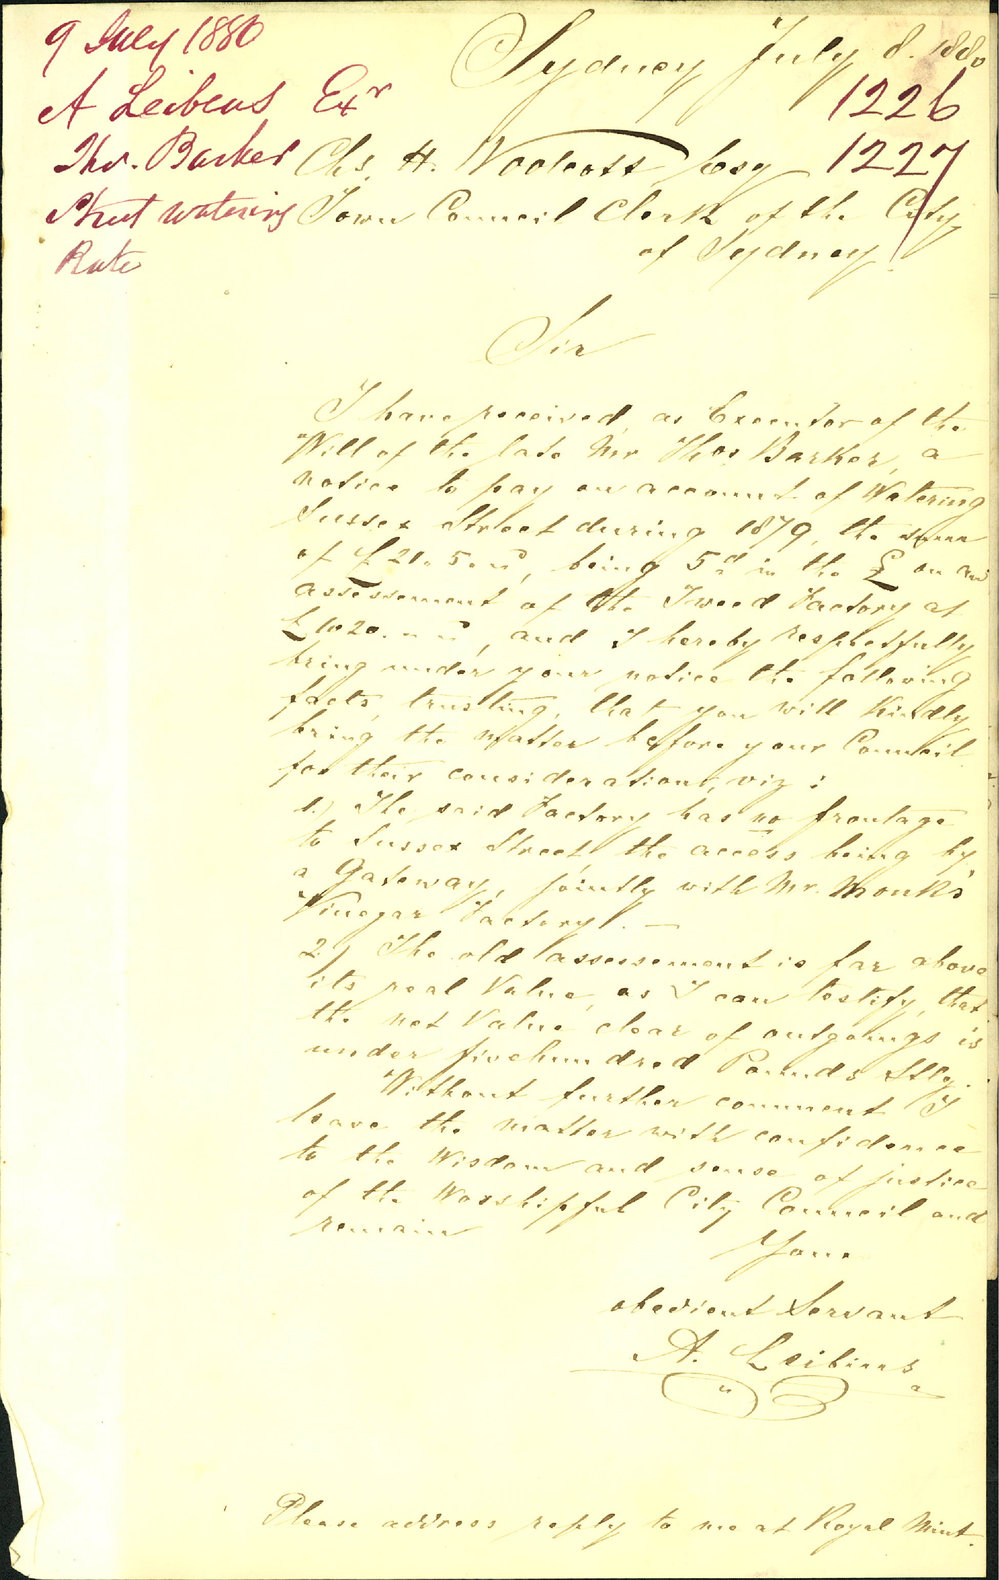 9 July 1880
A Leibius Exr
Thos. Barker
Street watering
Rate
1226
1227
Sydney July 8. 1880
Chs. H. Woolcott Esq
Town Council Clerk of the City
of Sydney.
Sir
I have received, as Executor of the
Will of the late Mr Thos Barker, a
notice to pay on account of Watering
Sussex Street during 1879, the sum
of £21. 5. ", being 5d in the £ on an
assessement of the Tweed Factory at
£1020. " ", and I hereby respectfully
bring under your notice the following
facts, trusting, that you will kindly
bring the matter before your Council
for their consideration, viz :
1.) The said Factory has no frontage
to Sussex Street, the access being by
a Gateway, jointly with Mr. Monk's
Vinegar Factory. —
2.) The old assessement is far above
its real Value, as I can testify, that
the net Value clear of outgoings is
under fivehundred Pounds Stlg.
Without further comment I
leave the matter with confidence
to the Wisdom and sense of justice
of the Worshipful City Council and
remain
Your
obedient Servant
A. Leibius
Please address reply to me at Royal Mint.